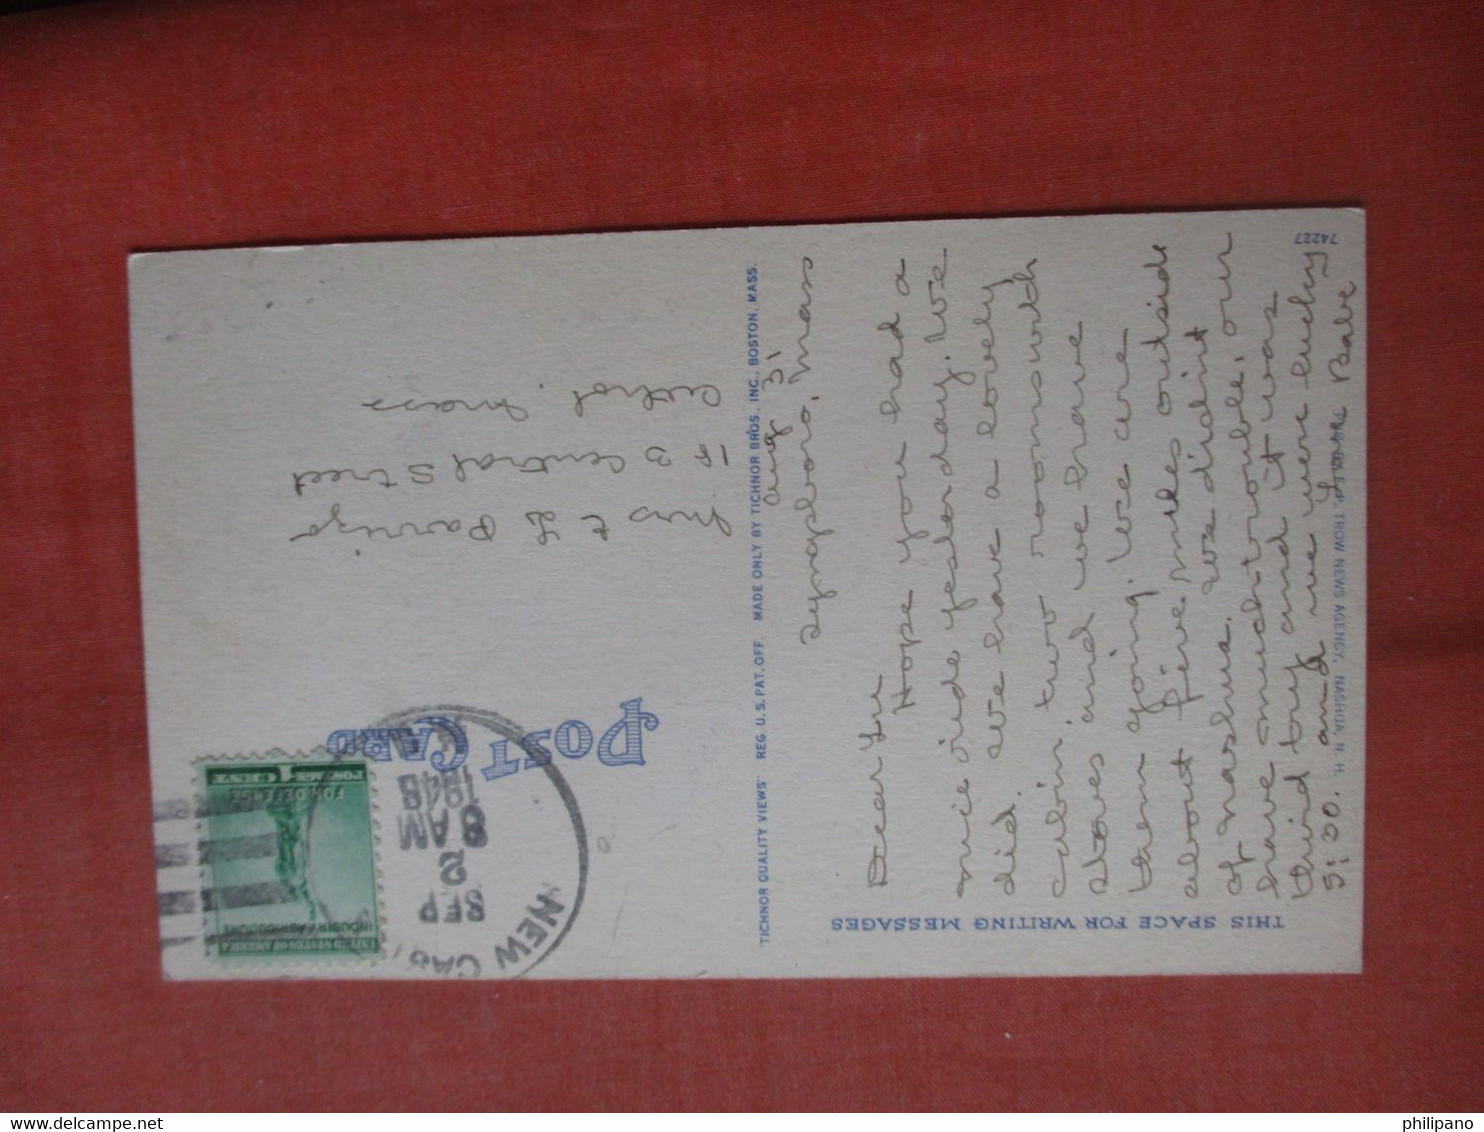 THIS SPACE FOR WRITING MESSAGES
POST CARD
UNITED STATES OF AMERICA
INDUSTRY AGRICULTURE
FOR DEFENSE
POSTAGE 1 CENT
NEW
SEP
2
8 AM
1948
Aug 31
Tyngsboro, Mass
Dear Lou
Hope you had a
nice ride yesterday. We
did. We have a lovely
cabin, two rooms with
stoves and we have
them going. We are
about five miles outside
of Nashua. We didint
have much trouble, our
third try and it was
5:30. and we were lucky
Love Babe
Mrs E L Parrizo
183 Central Street
Mass
"TICHNOR QUALITY VIEWS" REG. U. S. PAT. OFF. MADE ONLY BY TICHNOR BROS., INC., BOSTON, MASS.
TROW NEWS AGENCY, NASHUA, N. H.
74227
philipano